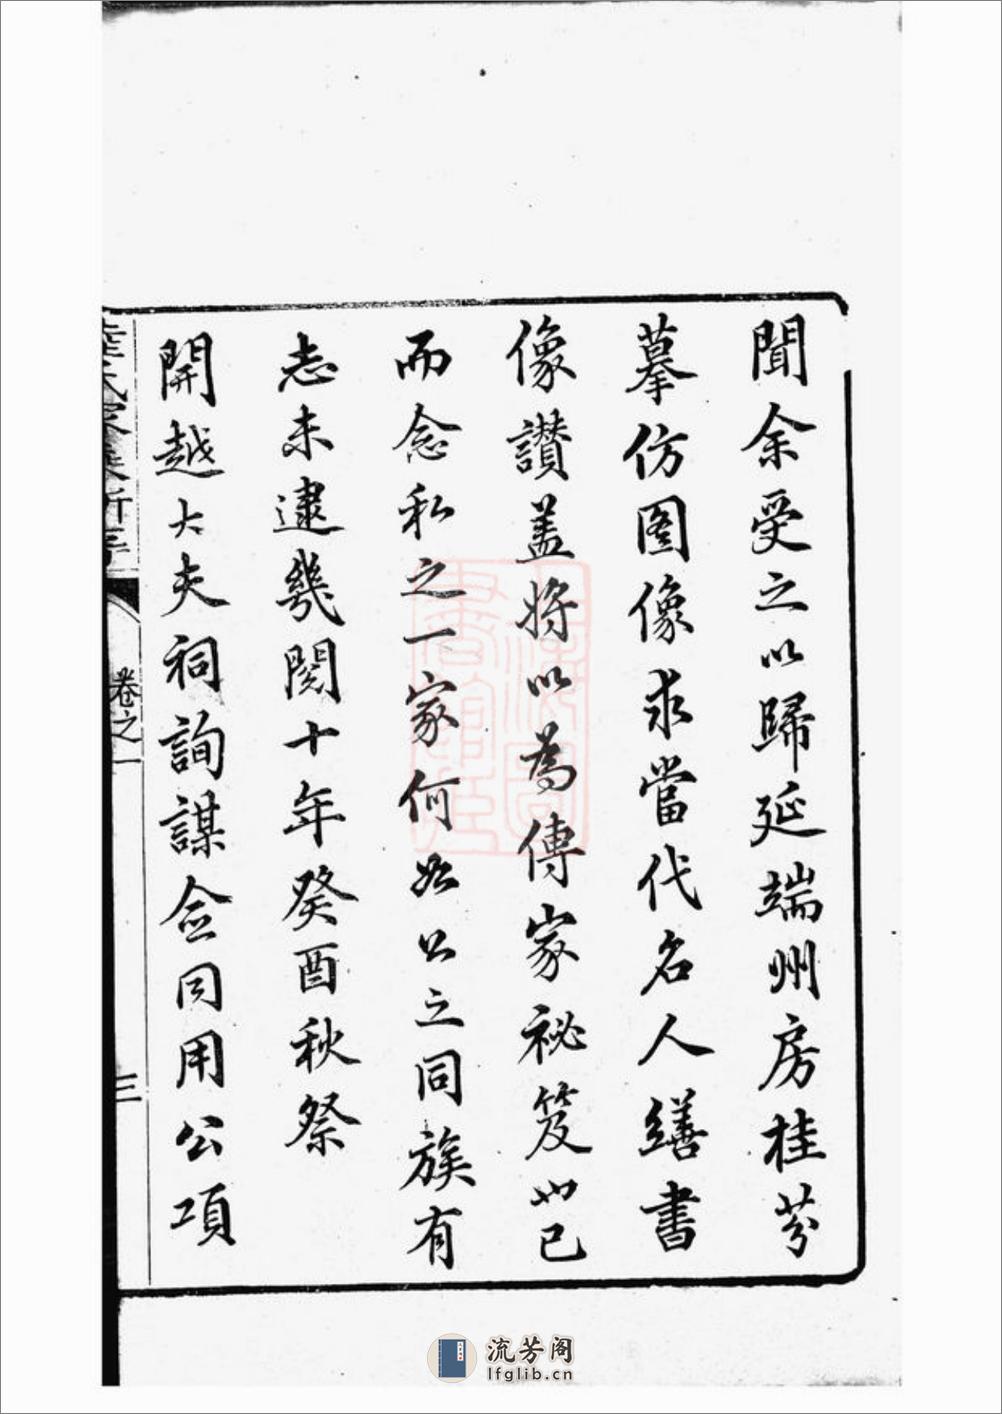 聞余受之以歸延端州房桂芬
摹仿图像求當代名人繕書
像讃蓋將以為傳家祕笈也已
而念私之一家何如公之同族有
志未逮幾閱十年癸酉秋祭
開越大夫祠詢謀僉同用公項
卷之一
三
流芳阁
lfglib.cn